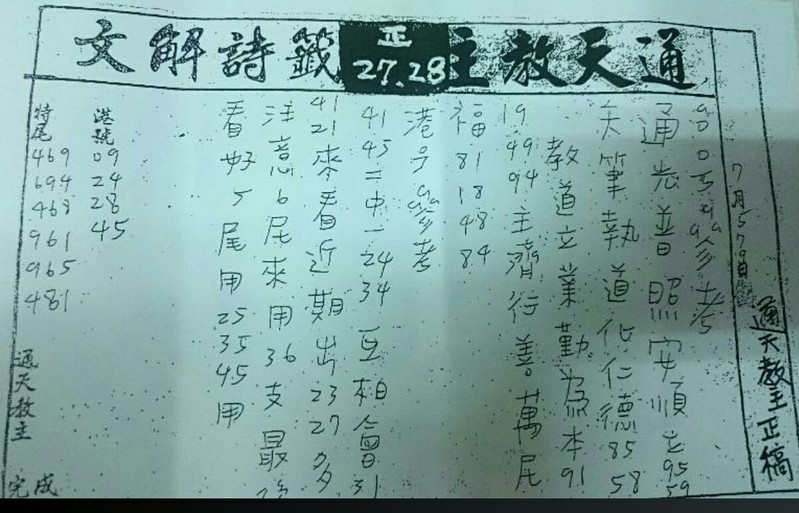 通天教主 正 27.28 籤詩解文
7月5 7 9日
通天教主正稿
參考
通光普照安順走 95 59
天筆執道化仁德 85 58
教道立業勤為本 91
19 49 94 主濟行善萬民
福 81 18 48 84
港号參考
41 45 二中一 24 34 互相會 31
41 21 來看近期出 23 27 多
注意6尾來用 36 支最
看好5尾用 25 35 45 用
港號 09 24 28 45
特尾 469 694 468 961 965 481
通天教主 完成